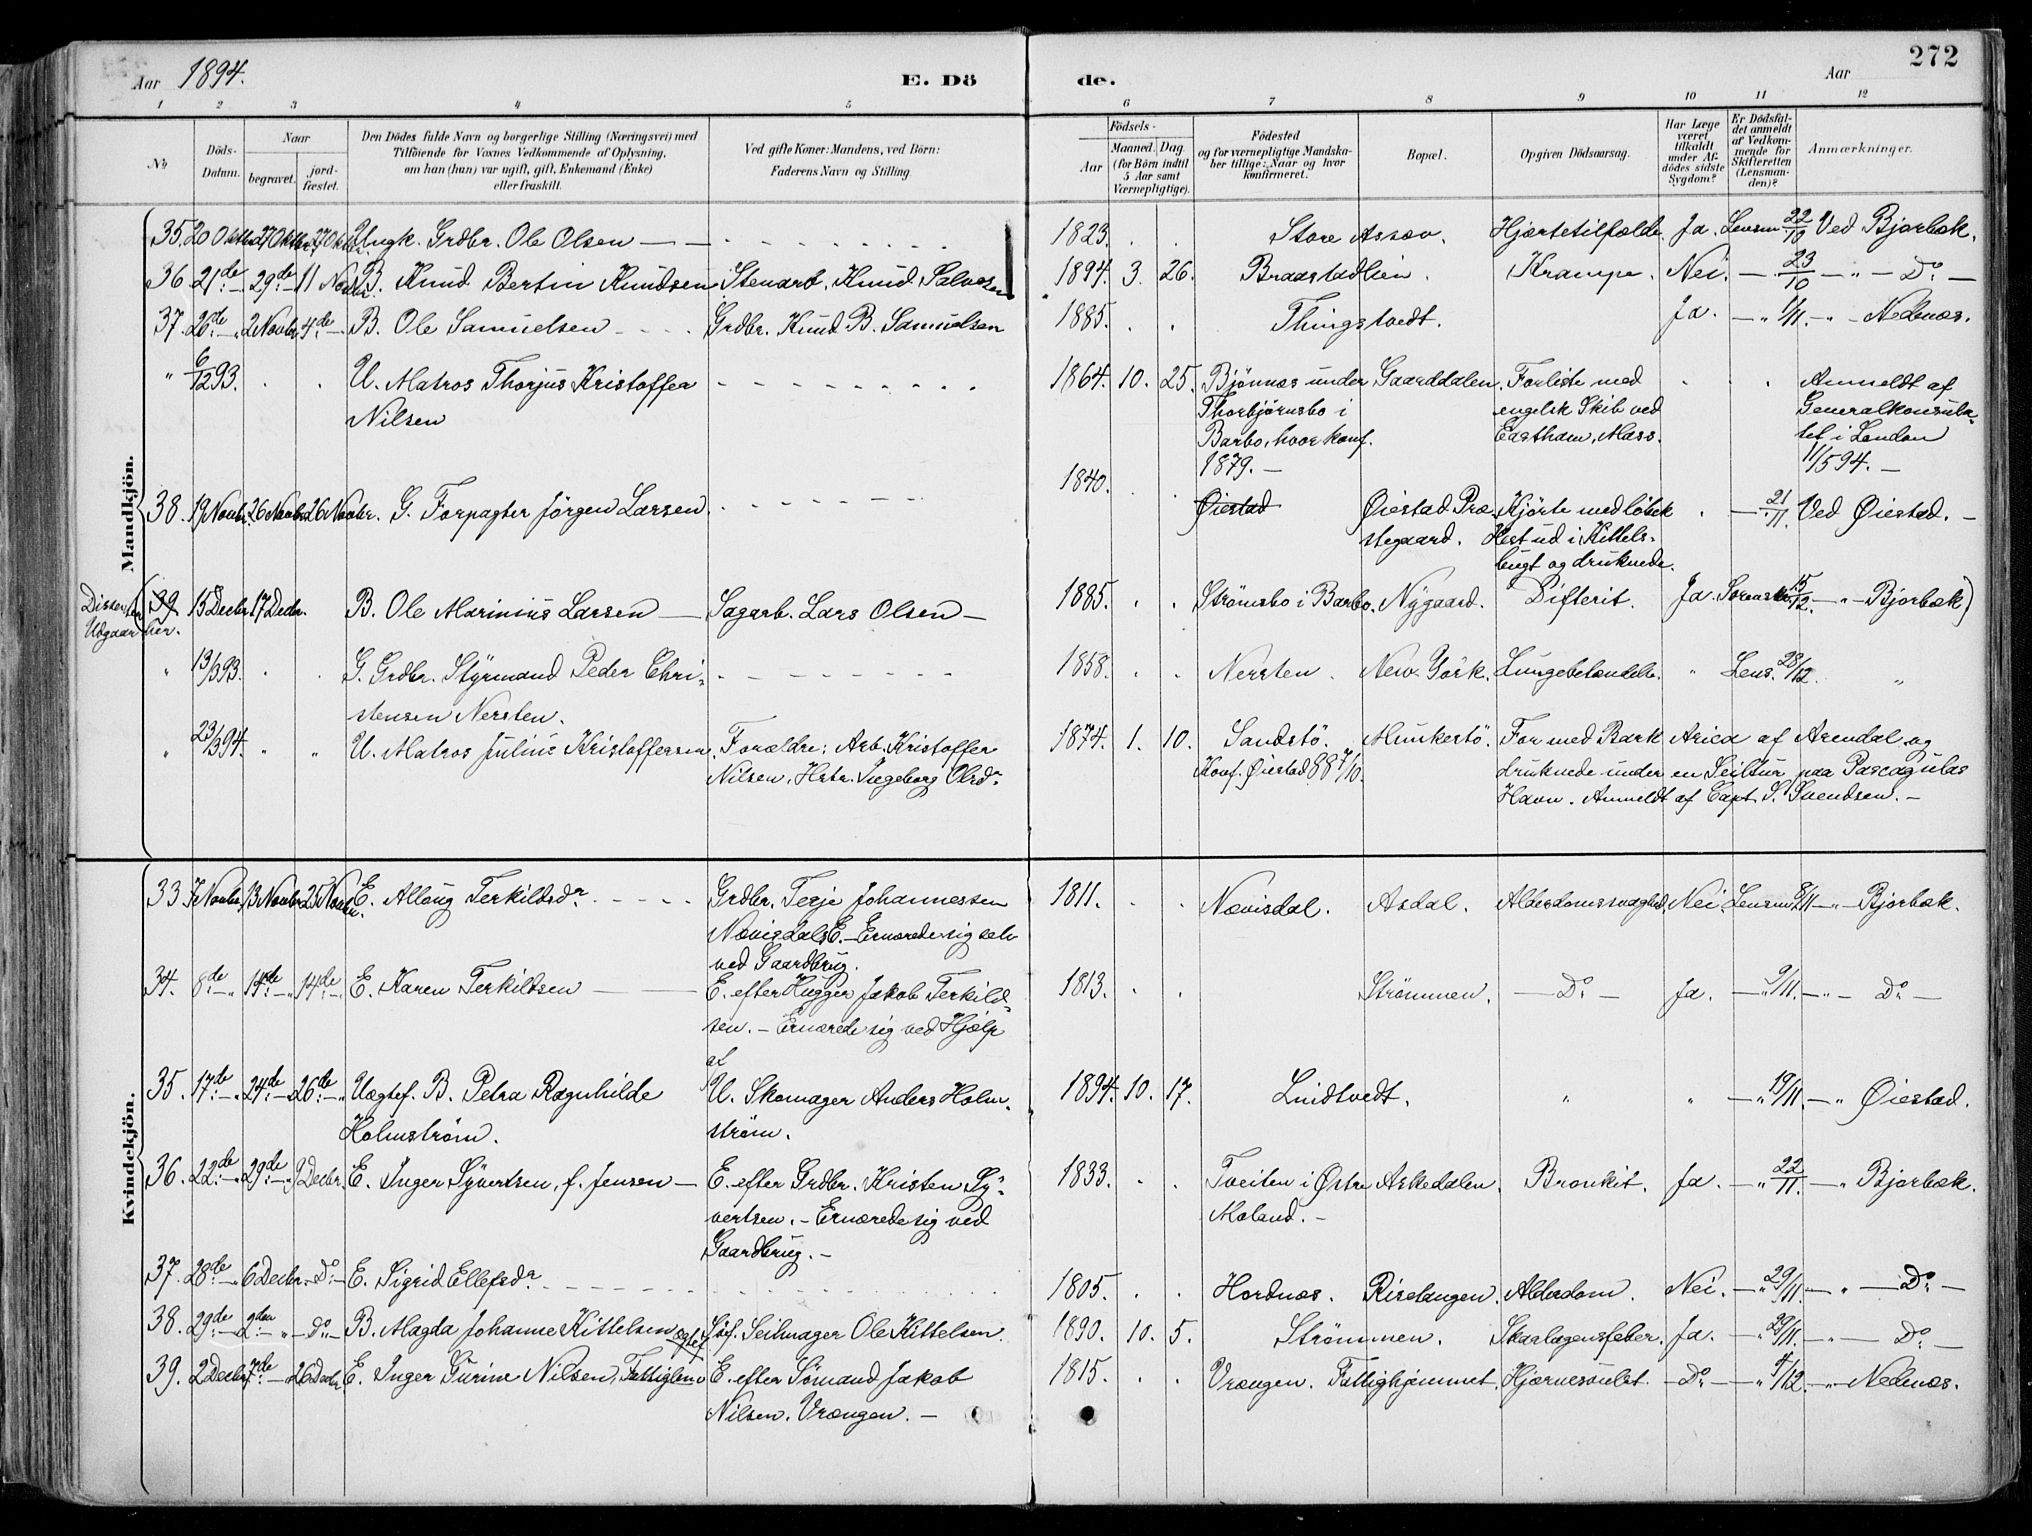 272
Aar 1894.
E. Dö de.
Aar
1 2 3 4 5 6 7 8 9 10 11 12
No
Döds-Datum.
Naar
begravet.
jordfæstet.
Den Dödes fulde Navn og borgerlige Stilling (Næringsvei) med
Tilföiende for Voxnes Vedkommende af Oplysning,
om han (hun) var ugift, gift, Enkemand (Enke)
eller fraskilt.
Ved gifte Koner: Mandens, ved Börn:
Faderens Navn og Stilling.
Födsels-
Aar
Maaned. Dag.
(for Börn indtil
5 Aar samt
Værnepligtige).
Födested
og for værnepligtige Mandska-
ber tillige: Naar og hvor
konfirmeret.
Bopæl.
Opgiven Dödsaarsag.
Har Læge
været
tilkaldt
under Af-
dödes sidste
Sygdom?
Er Dödsfal-
det anmeldt
af Vedkom-
mende for
Skifteretten
(Lensman-
den)?
Anmærkninger.
Mandkjön.
35. 20 Oktbr 27 Oktbr 27 Oktbr. Ungk. Grdbr. Ole Olsen — 1823. Store Assev. Hjertetilfælde. Ja. Lensm 22/10 Ved Bjorbæk.
36 21de 29de 11 Novbr. B. Knud Bertin Knudsen Stenarb. Knud Salvesen 1894. 3. 26. Braastadlien. Krampe. Nei. — 23/10 — " — Do —
37. 26de 2 Novbr 4de B. Ole Samuelsen Grdbr. Knud B. Samuelsen 1885. Thingstvedt. Ja. — " 1/11. — " — Nedenæs.
" 6/12 93. U. Matros Thorjus Kristoffer 1864. 10. 25. Bjönnæs under Gaarddalen. Forliste med Anmeldt af
Nilsen Thorbjörnsbo i engelsk Skib ved Generalkonsula-
Barbo, hvor konf. Eastham, Mass. tet i London
1879. — 11/5 94. —
38. 19 Novbr. 26 Novbr 26 Novbr. G. Forpagter Jörgen Larsen 1840. Øiestad Øiestad Præ- Kjörte med löbsk — 21/11. Ved Øiestad. —
stegaard. Hest ud i Kittels-
bugt og druknede.
Dissenter
Udgaar her.
39 15 Decbr 17 Decbr. B. Ole Marinius Larsen — Sagarb. Lars Olsen — 1885. Strömsbo i Barbo. Nygaard. Difterit. Ja. 15/12. — " — Bjorbæk)
" 13/3 93. G. Grdbr. Styrmand Peder Chri- 1858. Nersten. New York. Lungebetændelse. " Lens. 28/12. "
stensen Nersten.
" 23/3 94. " " U. Matros Julius Kristoffersen. Forældre: Arb. Kristoffer 1874. 1. 10. Sandstö. Munkestö. For med Bark Arica af Arendal og
Nilsen, Hstr. Ingeborg Olsdr. Konf. Øiestad 88 7/10. druknede under en Seiltur paa Pascagulas
Havn. Anmeldt af Capt. S. Svendsen. —
Kvindekjön.
33 7 Novbr. 13 Novbr 25 Novbr. E. Allaug Terkildsdr. Grdbr. Terje Johannessen 1811. Nævisdal. Asdal. Alderdomssvaghed. Nei. Lensm 8/11 — " — Bjorbæk.
Nævisdals E. — Ernærede sig selv
ved Gaardbrug.
34. 8de 14de 14de E. Karen Terkildsen — E. efter Hugger Jakob Terkild- 1813. Strömmen. — Do — Ja. — " 9/11. — " — Do —
sen. — Ernærede sig ved Hjælp
af
35. 17de 24de 26de Uægtef. B. Petra Ragnhilde U. Skomager Anders Holm- 1894. 10. 17. Lindtvedt. " " — " 19/11. — " Øiestad.
Holmström. ström.
36. 22de 29de 9 Decbr. E. Inger Syvertsen, f. Jensen — E. efter Grdbr. Kristen Sy- 1833. Tveiten i Östre Askedalen. Bronkit. Ja. — " 22/11. — " Bjorbæk.
vertsen. — Ernærede sig ved Moland. —
Gaardbrug. —
37. 28de 6 Decbr. Do — E. Sigrid Ellefsdr. 1805. Hordnæs. Riselangen. Alderdom. Nei. — " 29/11. — " — Do —
38. 29de 2den " — Do — B. Magda Johanne Kittelsen ægtef. Seilmager Ole Kittelsen. 1890. 10. 5. Strömmen. Skarlagensfeber. Ja. — " 29/11. — " — Do —
39. 2 Decbr 7de 26 Decbr E. Inger Gurine Nilsen, Fattiglem E. efter Sömand Jakob 1815. Vrengen. Fattighjemmet. Hjernesvulst. — Do — — " 4/12. — " — Nedenæs.
Nilsen. Vrengen. —